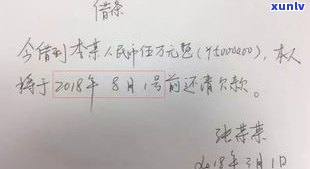 讯律网
xunlv
借条
今借到李某人民币伍万元整(¥50000),本人
将于2018年8月1号前还清欠款。
张某某
2018年3月1日